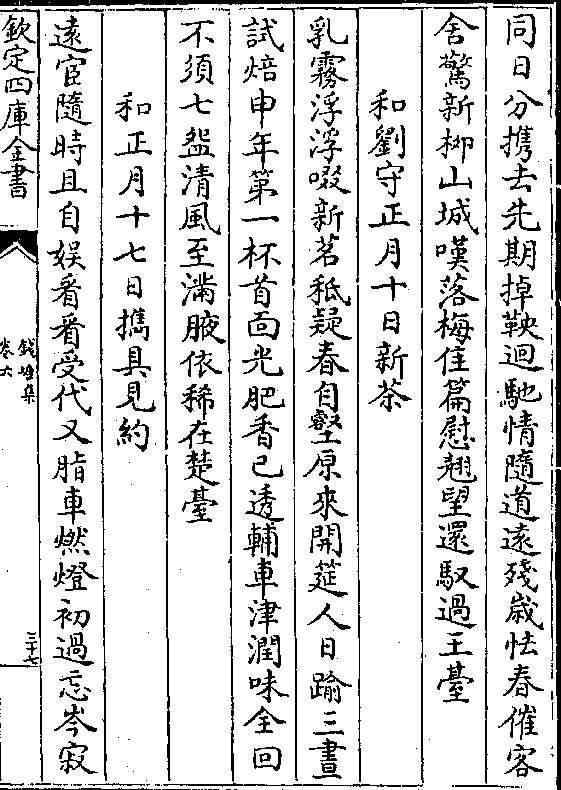 同日分攜去先期掉鞅迴馳情隨道遠殘歳怯春催客
舍驚新柳山城嘆落梅佳篇慰翹望還馭過王臺
和劉守正月十日新茶
乳霧浮浮啜新茗秪疑春自壑原來開筵人日踰三晝
試焙申年第一杯首面光肥香已透輔車津潤味全回
不須七盌清風至滿腋依稀在楚臺
和正月十七日攜具見約
遠宦隨時且自娱看看受代又脂車燃燈初過忘岑寂
欽定四庫全書
錢塘集
卷六
三十七